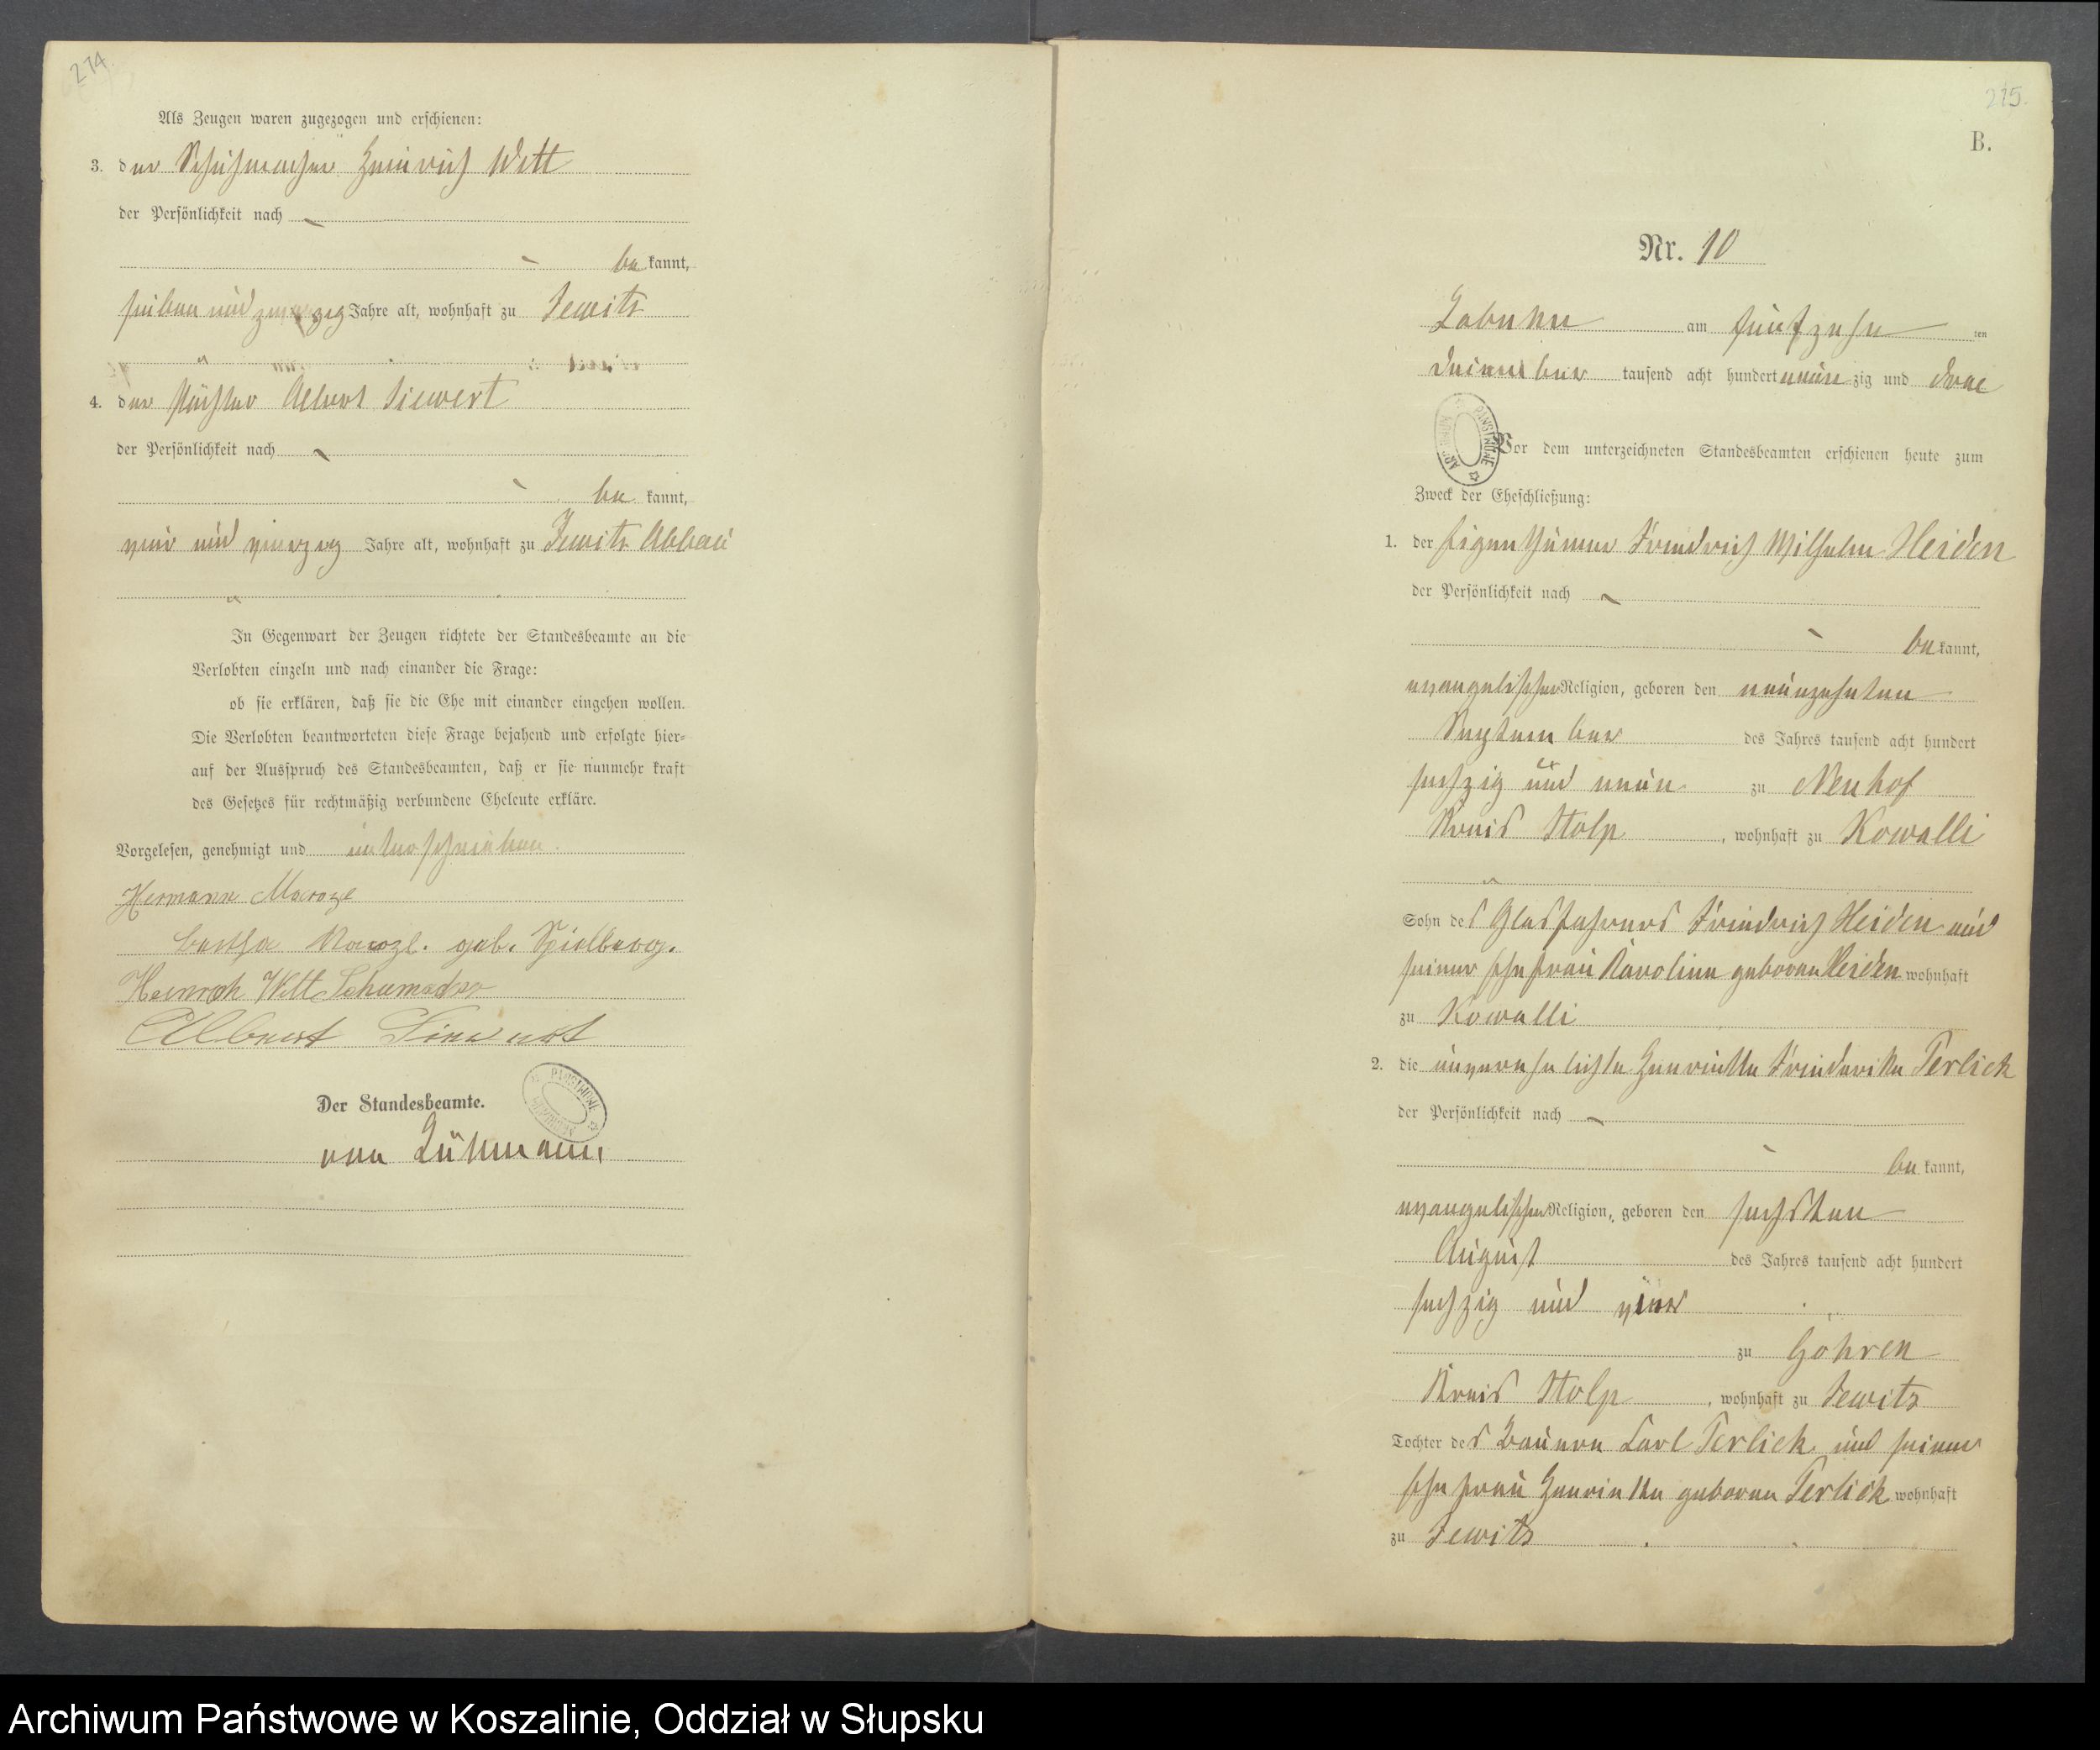 274.
Als Zeugen waren zugezogen und erschienen:
3. der Schuhmacher Heinrich Witt
der Persönlichkeit nach
bekannt,
sieben und zwanzig Jahre alt, wohnhaft zu Jewitz
4. der Albert Siewert
der Persönlichkeit nach
bekannt,
vier und vierzig Jahre alt, wohnhaft zu Jewitz Abbau
In Gegenwart der Zeugen richtete der Standesbeamte an die
Verlobten einzeln und nach einander die Frage:
ob sie erklären, daß sie die Ehe mit einander eingehen wollen.
Die Verlobten beantworteten diese Frage bejahend und erfolgte hier-
auf der Ausspruch des Standesbeamten, daß er sie nunmehr kraft
des Gesetzes für rechtmäßig verbundene Eheleute erkläre.
Vorgelesen, genehmigt und unterschrieben.
Hermann
Bertha geb. Spielberg.
Heinrich Witt Schumacher
Albert Siewert
Der Standesbeamte.
von
275.
B.
Nr. 10
Labuhn am fünfzehnten
Dezember tausend acht hundert neunzig und drei
Vor dem unterzeichneten Standesbeamten erschienen heute zum
Zweck der Eheschließung:
1. der Eigenthümer Friedrich Wilhelm Heiden
der Persönlichkeit nach
bekannt,
evangelischer Religion, geboren den neunzehnten
September des Jahres tausend acht hundert
sechzig und neun zu Neuhof
Kreis Stolp, wohnhaft zu Kowalli
Sohn des Friedrich Heiden und
seiner Ehefrau Karoline geboren Heiden wohnhaft
zu Kowalli
2. die unverehelichte Henriette Friederike Terlick
der Persönlichkeit nach
bekannt,
evangelischer Religion, geboren den sechsten
August des Jahres tausend acht hundert
sechzig und vier
zu Göhren
Kreis Stolp, wohnhaft zu Jewitz
Tochter des Bauern Carl Terlick und seiner
Ehefrau Henriette geboren Terlick wohnhaft
zu Jewitz
Archiwum Państwowe w Koszalinie, Oddział w Słupsku